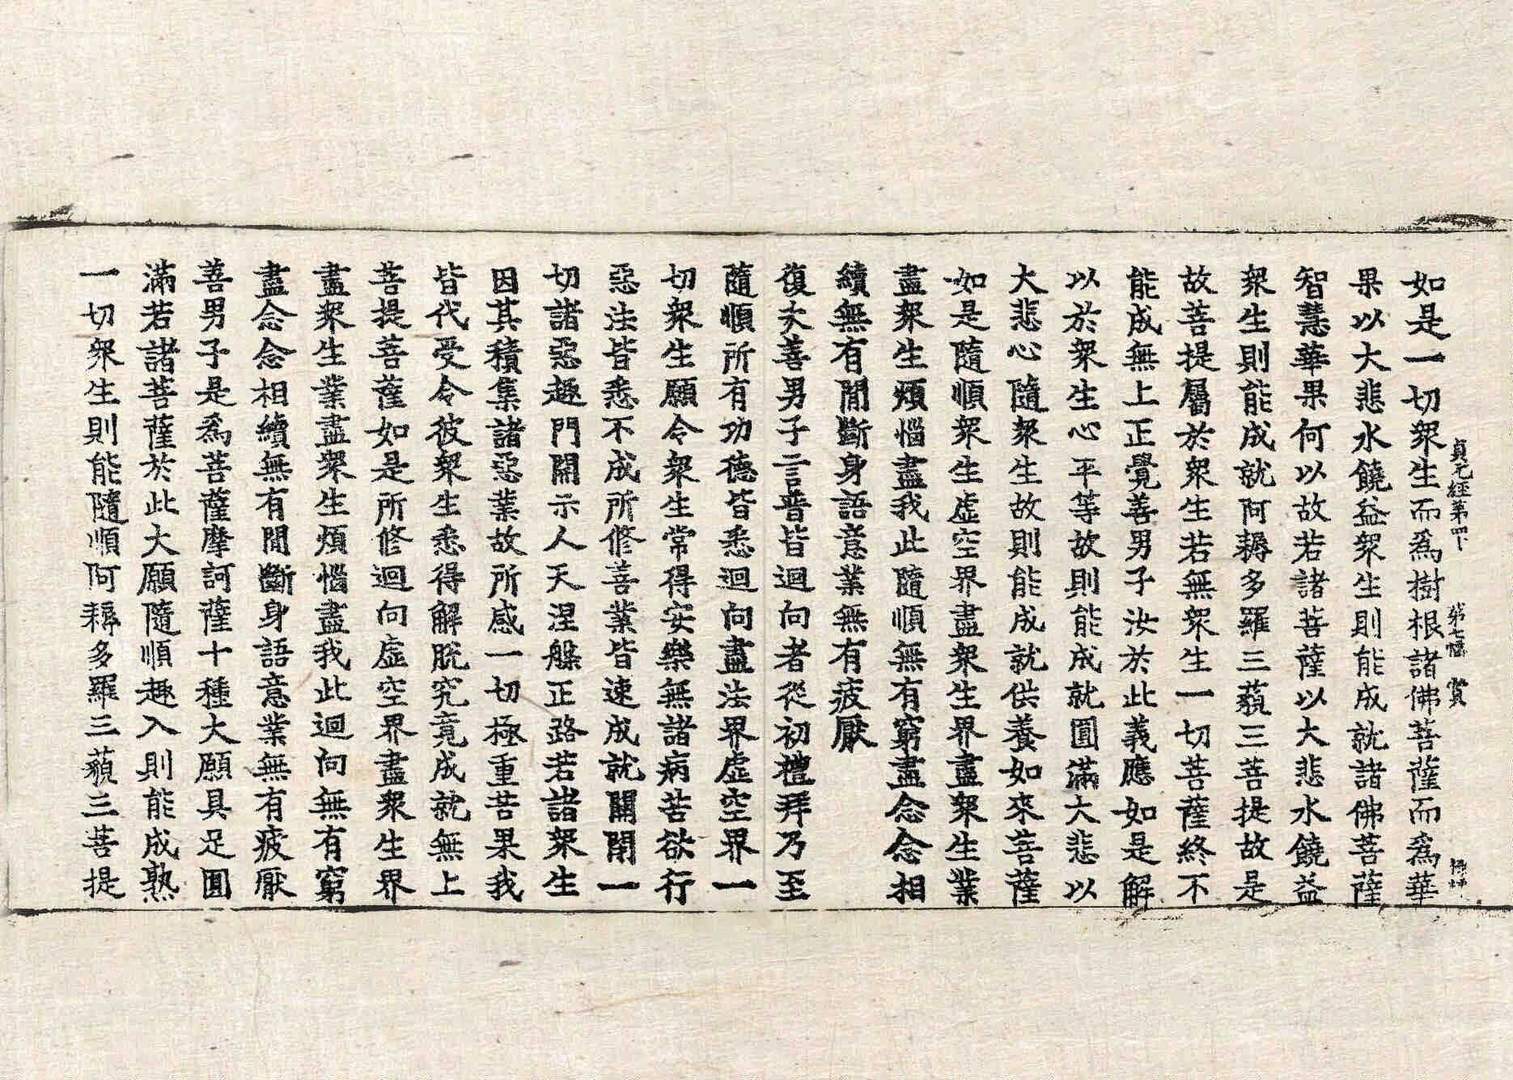 如是一切衆生而爲樹根諸佛菩薩而爲華
貞元經第四十 第七幅 賞
果以大悲水饒益衆生則能成就諸佛菩薩
智慧華果何以故若諸菩薩以大悲水饒益
衆生則能成就阿耨多羅三藐三菩提故是
故菩提屬於衆生若無衆生一切菩薩終不
能成無上正覺善男子汝於此義應如是解
以於衆生心平等故則能成就圓滿大悲以
大悲心隨衆生故則能成就供養如來菩薩
如是隨順衆生虛空界盡衆生界盡衆生業
盡衆生煩惱盡我此隨順無有窮盡念念相
續無有間斷身語意業無有疲厭
復次善男子言普皆迴向者從初禮拜乃至
隨順所有功德皆悉迴向盡法界虛空界一
切衆生願令衆生常得安樂無諸病苦欲行
惡法皆悉不成所修善業皆速成就關閉一
切諸惡趣門開示人天涅槃正路若諸衆生
因其積集諸惡業故所感一切極重苦果我
皆代受令彼衆生悉得解脫究竟成就無上
菩提菩薩如是所修迴向虛空界盡衆生界
盡衆生業盡衆生煩惱盡我此迴向無有窮
盡念念相續無有間斷身語意業無有疲厭
善男子是爲菩薩摩訶薩十種大願具足圓
滿若諸菩薩於此大願隨順趣入則能成熟
一切衆生則能隨順阿耨多羅三藐三菩提